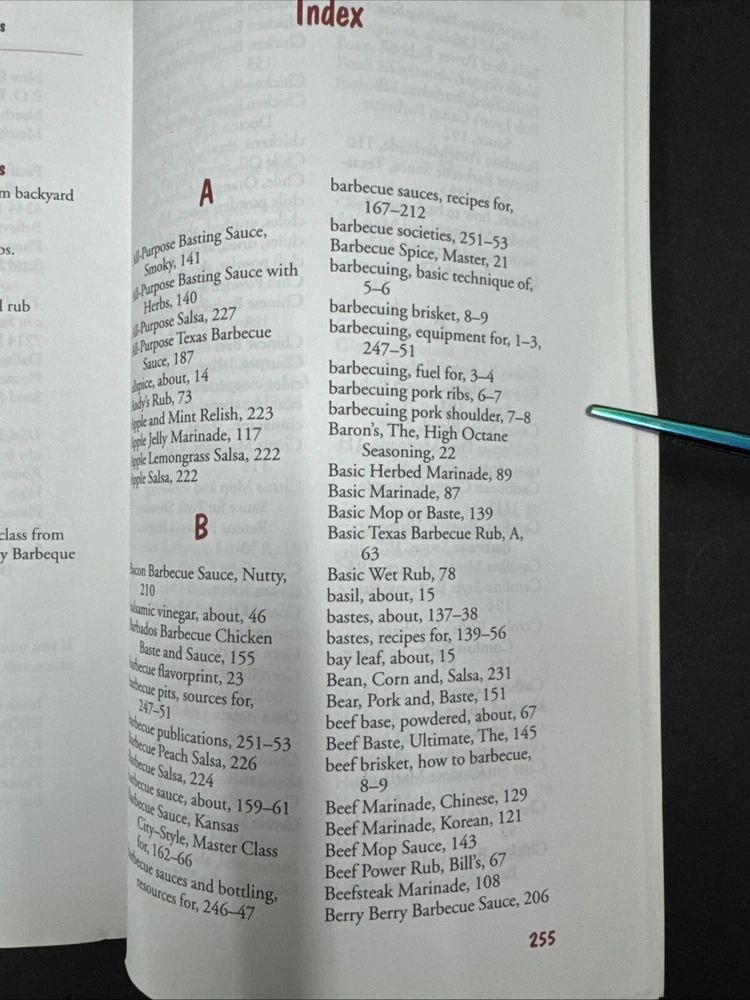 s
s
m backyard
os.
l rub
class from
y Barbeque
Index
A
All-Purpose Basting Sauce,
Smoky, 141
All-Purpose Basting Sauce with
Herbs, 140
All-Purpose Salsa, 227
All-Purpose Texas Barbecue
Sauce, 187
allspice, about, 14
Andy's Rub, 73
Apple and Mint Relish, 223
Apple Jelly Marinade, 117
Apple Lemongrass Salsa, 222
Apple Salsa, 222
B
Bacon Barbecue Sauce, Nutty,
210
balsamic vinegar, about, 46
Barbados Barbecue Chicken
Baste and Sauce, 155
barbecue flavorprint, 23
barbecue pits, sources for,
247–51
barbecue publications, 251–53
Barbecue Peach Salsa, 226
Barbecue Salsa, 224
barbecue sauce, about, 159–61
Barbecue Sauce, Kansas
City–Style, Master Class
for, 162–66
barbecue sauces and bottling,
resources for, 246–47
barbecue sauces, recipes for,
167–212
barbecue societies, 251–53
Barbecue Spice, Master, 21
barbecuing, basic technique of,
5–6
barbecuing brisket, 8–9
barbecuing, equipment for, 1–3,
247–51
barbecuing, fuel for, 3–4
barbecuing pork ribs, 6–7
barbecuing pork shoulder, 7–8
Baron's, The, High Octane
Seasoning, 22
Basic Herbed Marinade, 89
Basic Marinade, 87
Basic Mop or Baste, 139
Basic Texas Barbecue Rub, A,
63
Basic Wet Rub, 78
basil, about, 15
bastes, about, 137–38
bastes, recipes for, 139–56
bay leaf, about, 15
Bean, Corn and, Salsa, 231
Bear, Pork and, Baste, 151
beef base, powdered, about, 67
Beef Baste, Ultimate, The, 145
beef brisket, how to barbecue,
8–9
Beef Marinade, Chinese, 129
Beef Marinade, Korean, 121
Beef Mop Sauce, 143
Beef Power Rub, Bill's, 67
Beefsteak Marinade, 108
Berry Berry Barbecue Sauce, 206
255